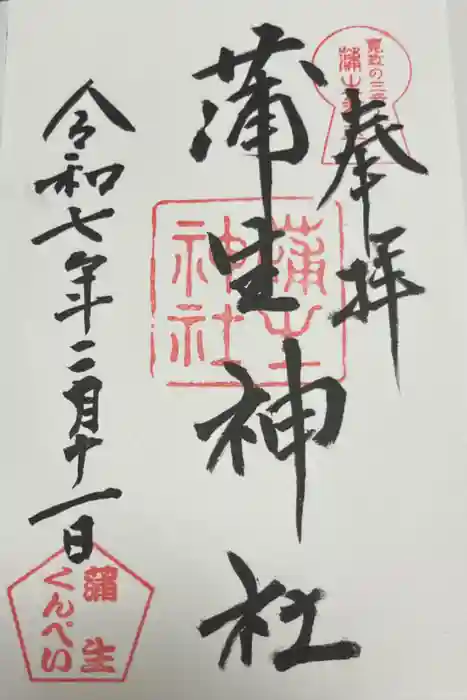 奉拝
寛政の三奇人
蒲生神社
蒲生神社
令和七年二月十一日
蒲生
くんぺい